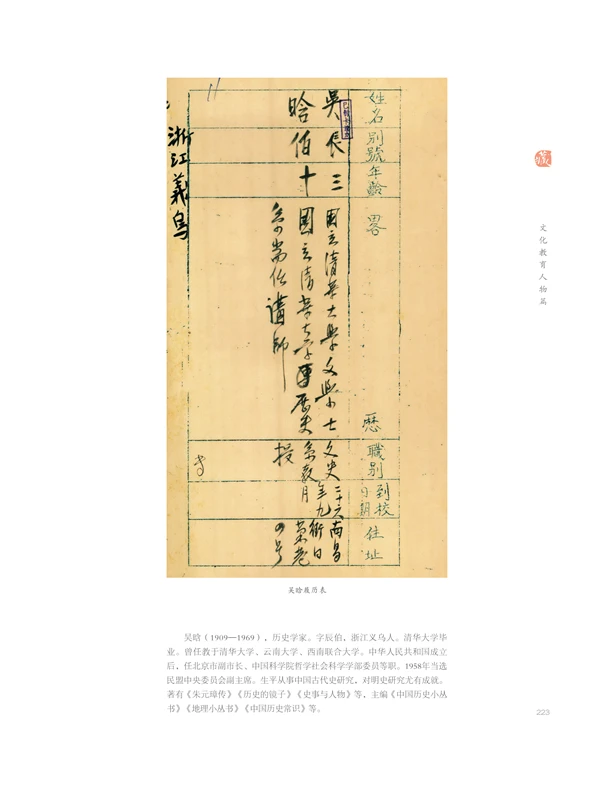 姓名
别號
年齡
畧
歷
職别
到校日期
住址
吳晗
伯
三十
浙江義乌
國立清華大學文學士
國立清華大学歷史
講師
文史
系教
授
二十六
年九
月
南昌
街
号
吴晗履历表
吴晗(1909—1969),历史学家。字辰伯,浙江义乌人。清华大学毕
业。曾任教于清华大学、云南大学、西南联合大学。中华人民共和国成立
后,任北京市副市长、中国科学院哲学社会科学学部委员等职。1958年当选
民盟中央委员会副主席。生平从事中国古代史研究,对明史研究尤有成就。
著有《朱元璋传》《历史的镜子》《史事与人物》等,主编《中国历史小丛
书》《地理小丛书》《中国历史常识》等。
文化教育人物篇
223